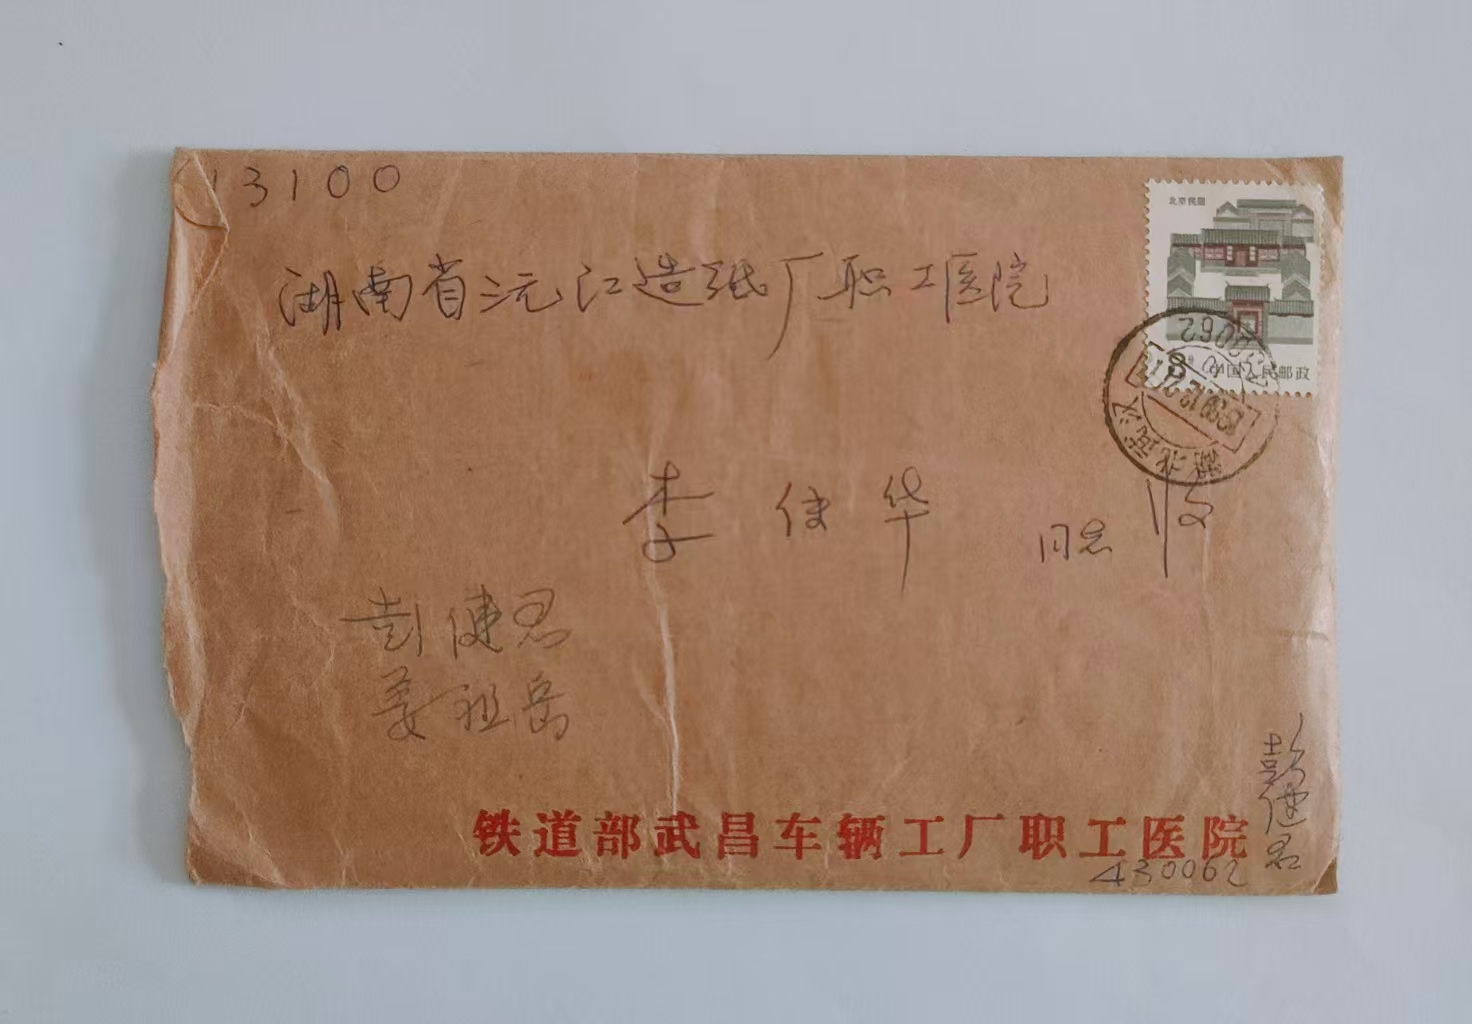 413100
北京民居
湖南省沅江造纸厂职工医院
中国人民邮政
430062
湖北武汉
李仕华 同志 收
彭健君
姜祖岳
彭健君
铁道部武昌车辆工厂职工医院
430062